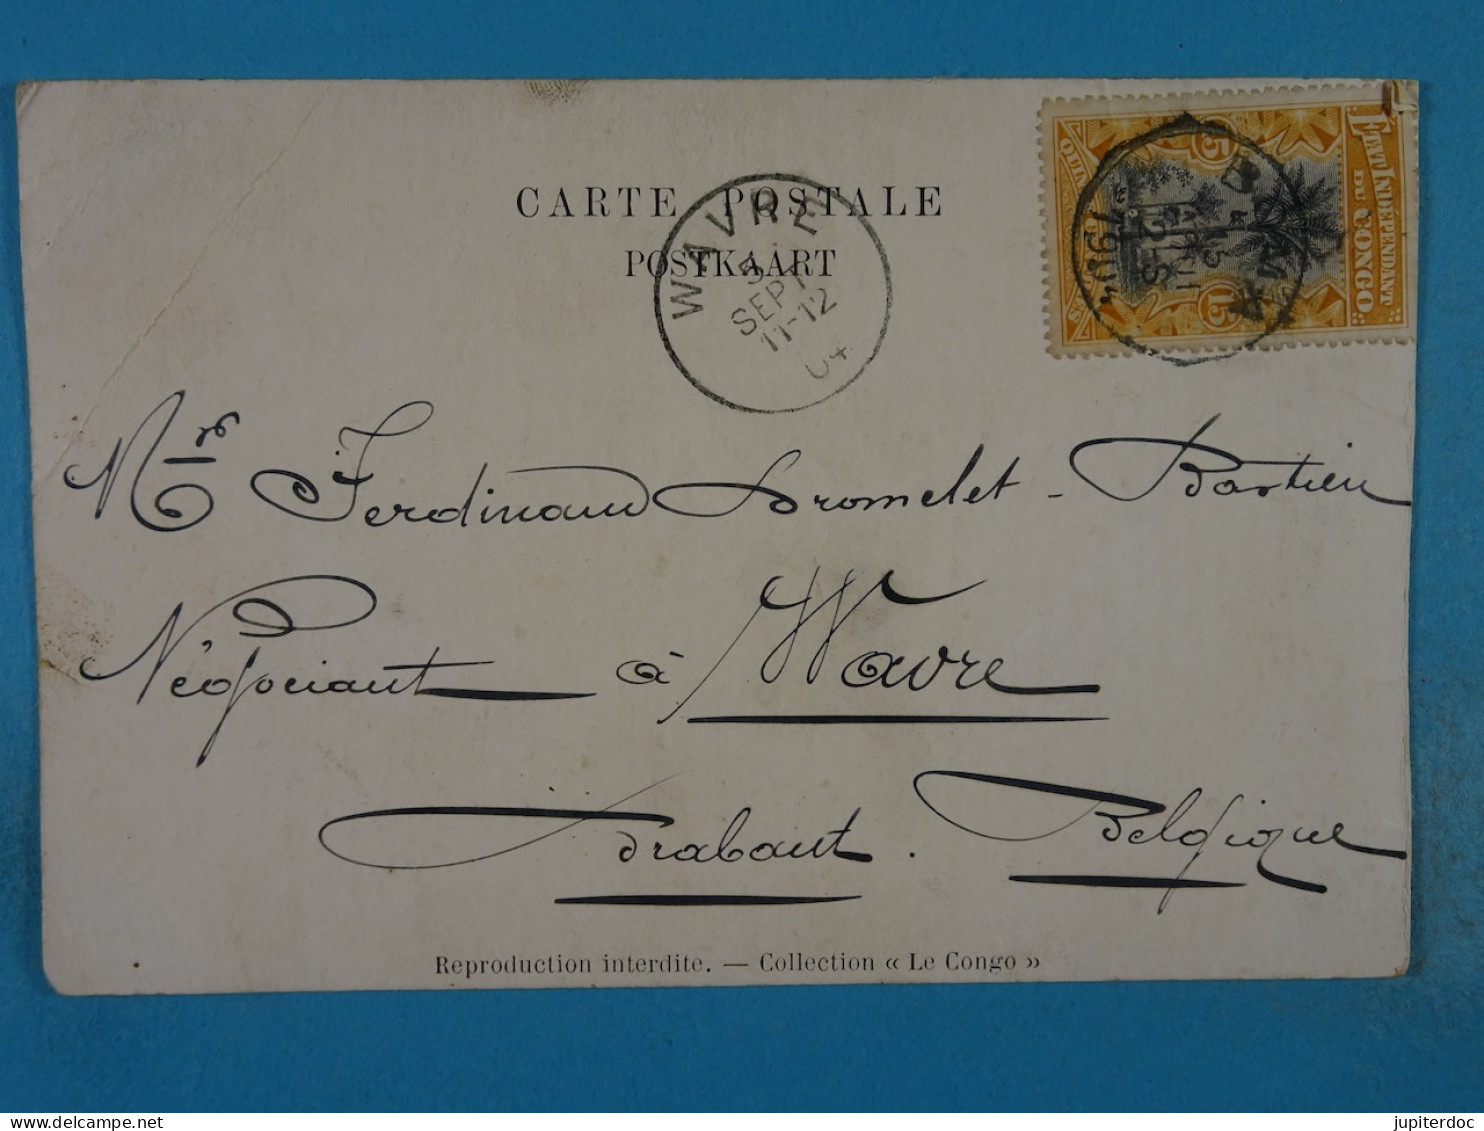 CARTE POSTALE
POSTKAART
WAVRE
5
SEPT
11-12
04
ETAT INDÉPENDANT
DU CONGO
15
15
Mr Ferdinand Dromelet - Bastien
Négociant à Wavre
Brabant. Belgique
Reproduction interdite. — Collection « Le Congo »
jupiterdoc